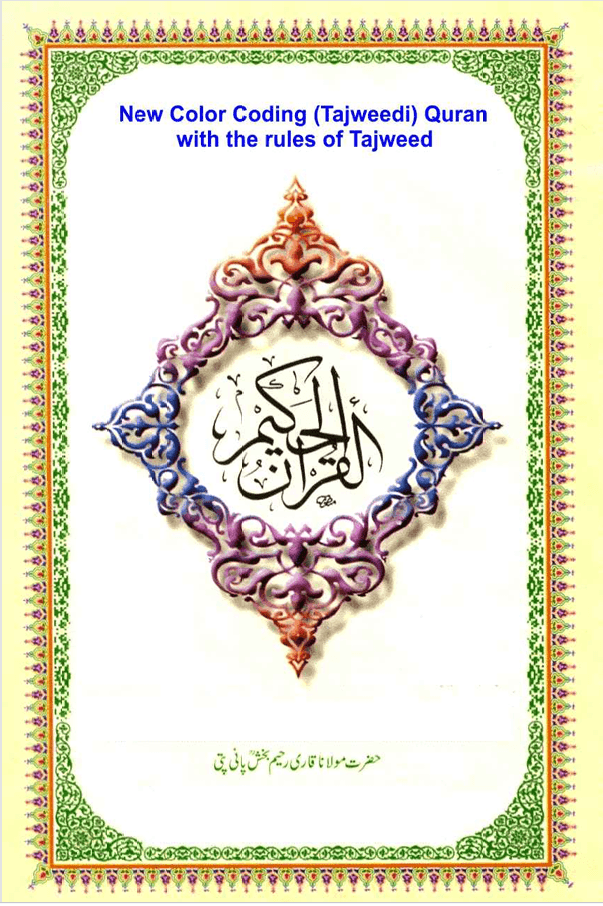 New Color Coding (Tajweedi) Quran
with the rules of Tajweed
القرآن الحكيم
حضرت مولانا قاری رحیم بخشؒ پانی پتی